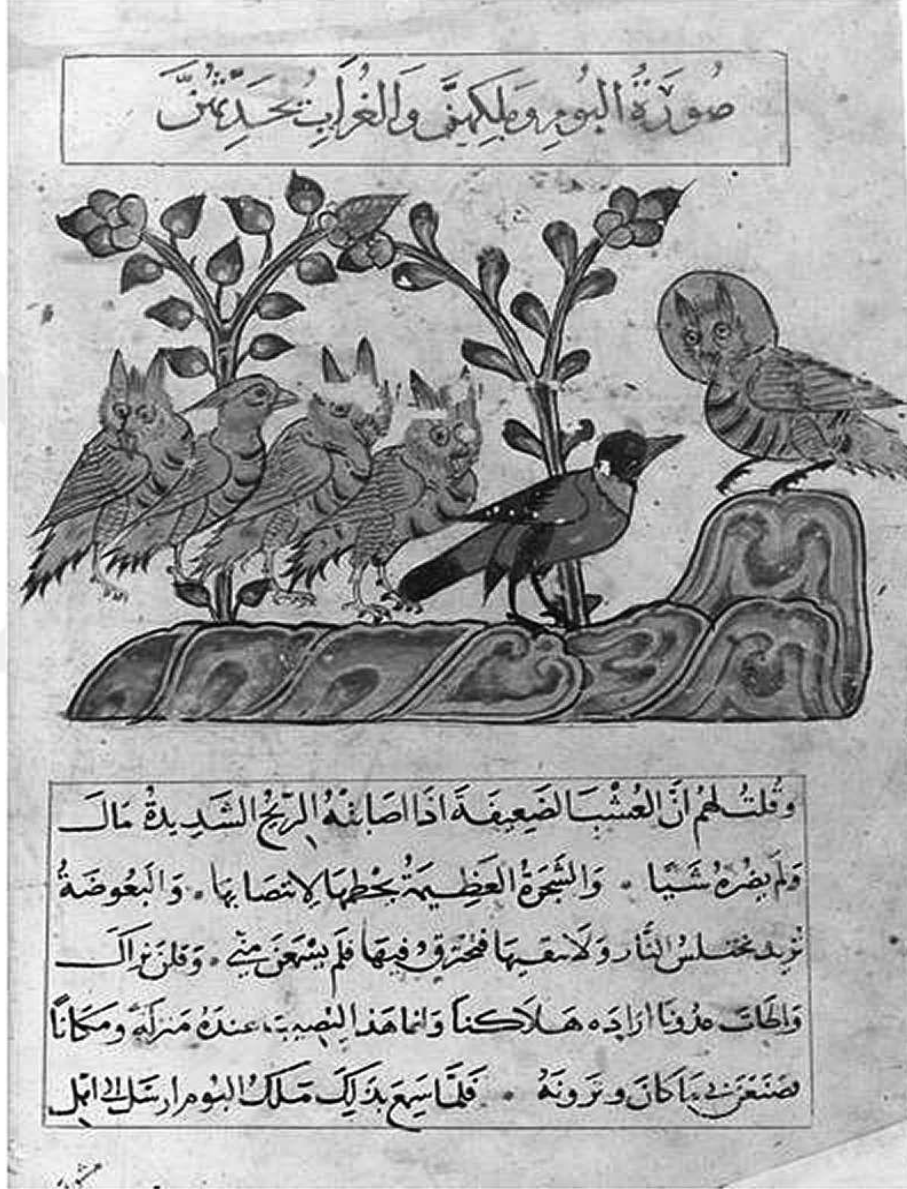 صُورَةُ البُومِ وَمَلِكِهِنَّ وَالغُرَابُ يُحَدِّثُهُنَّ
وقُلتُ لهُم انَّ العُشبَ الضَعِيفَة اذَا اصَابَهُ الرِّيحُ الشَدِيدةُ مَالَ
وَلم يضُرهُ شَيًا ۰ وَالشَجَرَةُ العَظِيمَةُ يحُطمهَا لاِنتصَابِهَا ۰ وَالبَعُوضَةُ
تريد النَّار وَلَا فتحترق فيهَا فلَم يسْمَعنَ مِنّي ۰ وَقلنَ نرَاكَ
هَلاكنَا وَانمَا هَذا عندهُ مَنزلَةً ومكَانًا
فصَنَعنَ بي مَا كانَ وترَونهُ ۰ فلَمَّا سَمِعَ بذَلِكَ مَلكُ البُوم ارسَل الى